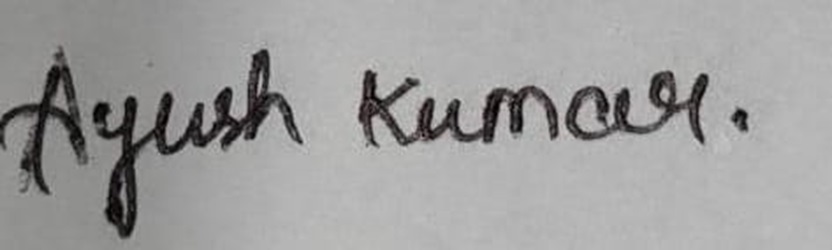 Ayush Kumar.